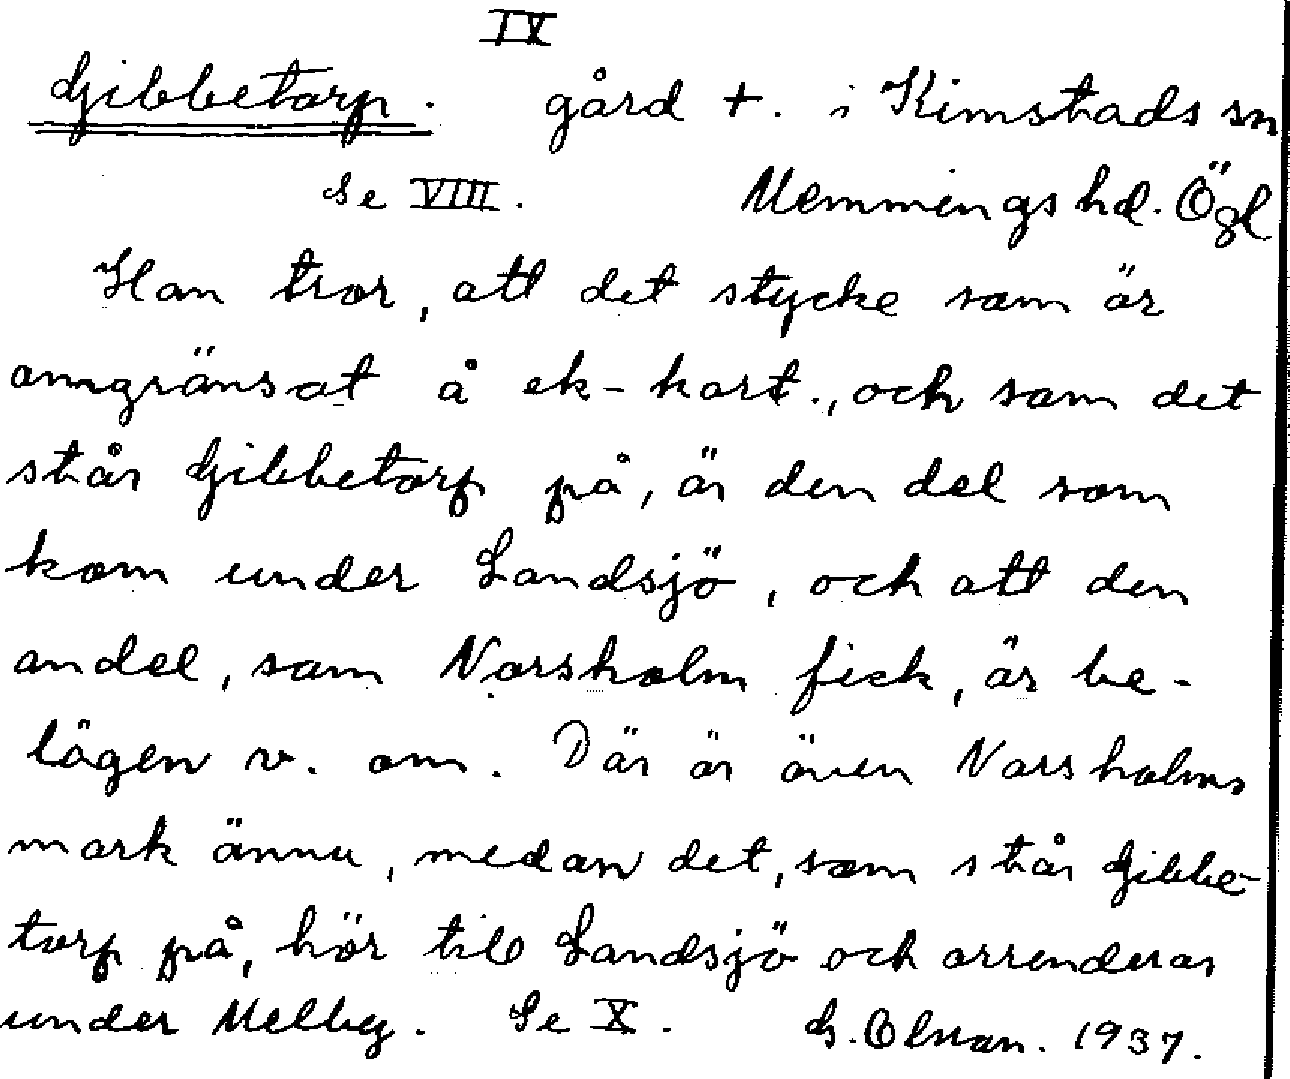 IV
Gibbetorp. gård +. i Kimstads sn
Se VIII. Memmings hd. Ögl
Han tror, att det stycke som är
omgränsat å ek-kart., och som det
står Gibbetorp på, är den del som
kom under Landsjö, och att den
andel, som Norsholm fick, är be-
lägen v. om. Där är även Norsholms
mark ännu, medan det, som står Gibbe-
torp på, hör till Landsjö och arrenderas
under Melby. Se X. G. Olson. 1937.